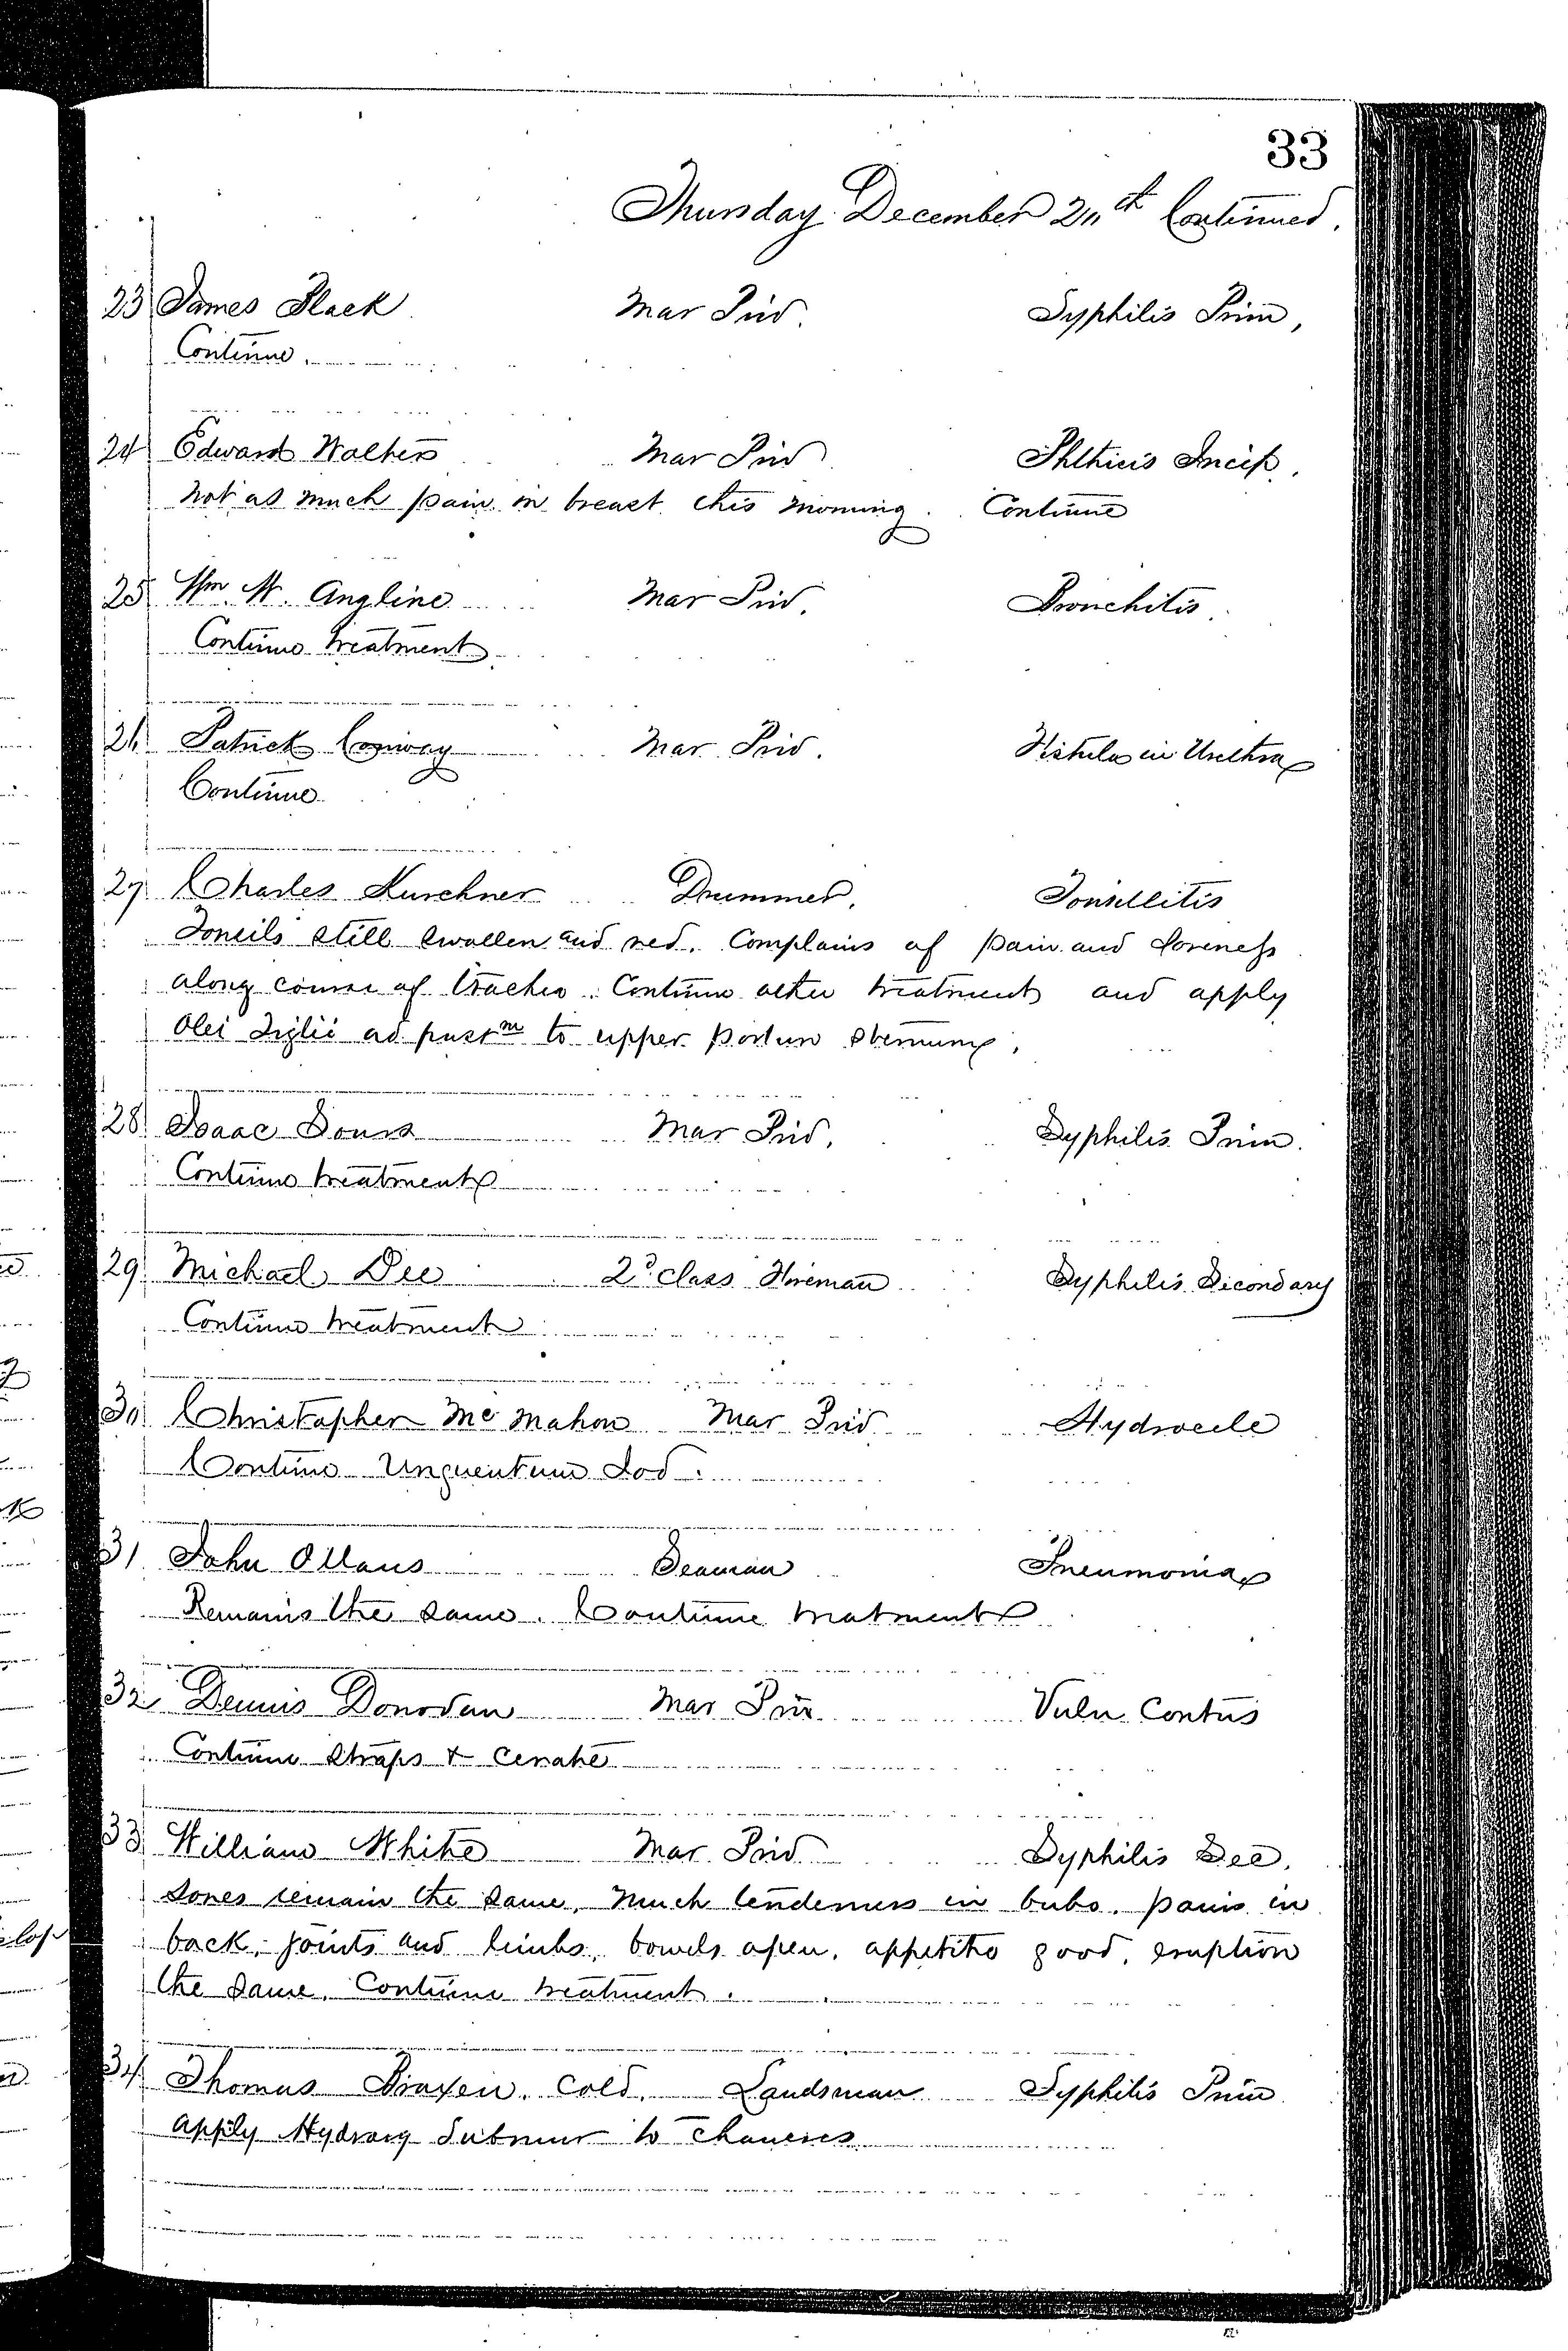 33
Thursday December 20th Continued.
23 James Black Mar Priv. Syphilis Prim,
Continue.
24 Edward Walters Mar Priv Phthicis Incip.
Not as much pain in breast this morning. Continue
25 Wm. W. Angline Mar Priv. Bronchitis.
Continue treatment
26 Patrick Conway Mar Priv. Fistula in Urethra
Continue
27 Charles Kurchner Drummer. Tonsillitis
Toncils still swollen and red. Complains of pain and soreness
along course of trachea. Continue other treatment and apply
Olei Tiglii ad pustm to upper portion sternum.
28 Isaac Mar Priv. Syphilis Prim.
Continue treatment
29 Michael Dee 2d class Fireman Syphilis Secondary
Continue treatment
30 Christopher McMahon Mar Priv Hydrocele
Continue Unguentum Iod.
31 John Seaman Pneumonia
Remains the same. Continue treatment
32 Dennis Donovan Mar Priv Vuln Contus
Continue straps & cerate
33 William White Mar. Priv Syphilis Sec.
Sores remain the same, much tenderness in bubo. pains in
back, joints and limbs, bowels open, appetite good, eruption
the same. Continue treatment.
34 Thomas Braxen. Cold. Landsman Syphilis Prim
apply Hydrarg Submur to chancres